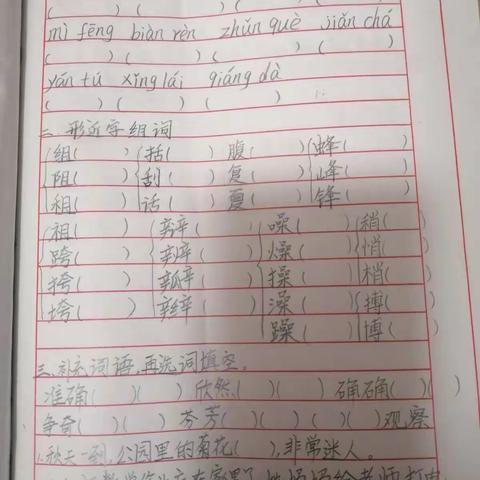 (    )(    )(    )(    )
mì fēng biàn rèn zhǔn què jiǎn chá
(    )(    )(    )(    )
yán tú xǐng lái qiáng dà
(    )(    )(    )
二、形近字组词
组(    ) 括(    ) 腹(    ) 蜂(    )
阻(    ) 刮(    ) 复(    ) 峰(    )
租(    ) 话(    ) 夏(    ) 锋(    )
祖(    ) 辨(    ) 噪(    ) 稍(    )
跨(    ) 辩(    ) 燥(    ) 悄(    )
挎(    ) 瓣(    ) 操(    ) 梢(    )
垮(    ) 辫(    ) 澡(    ) 搏(    )
躁(    ) 博(    )
三、补充词语,再选词填空。
准确(    )(    ) 欣然(    )(    ) 确确(    )(    )
争奇(    )(    ) 芬芳(    )(    )(    )(    )观察
1.秋天一到,公园里的菊花(    ),非常迷人。